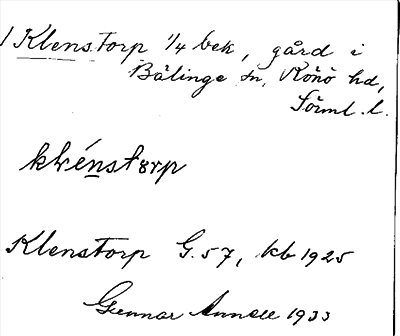 Klenstorp 1/4 bek, gård i
Bälinge sn, Rönö hd,
Sörml. l.
klénstørp
Klenstorp G. 57, kb 1925
Gunnar Annell 1933